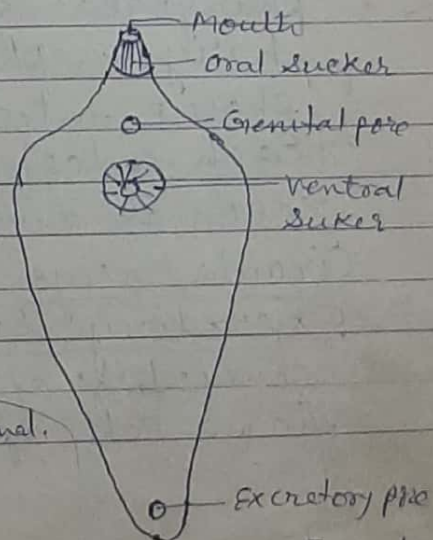 Mouth
Oral Sucker
Genital pore
Ventral
Suker
nal.
Excretory pore